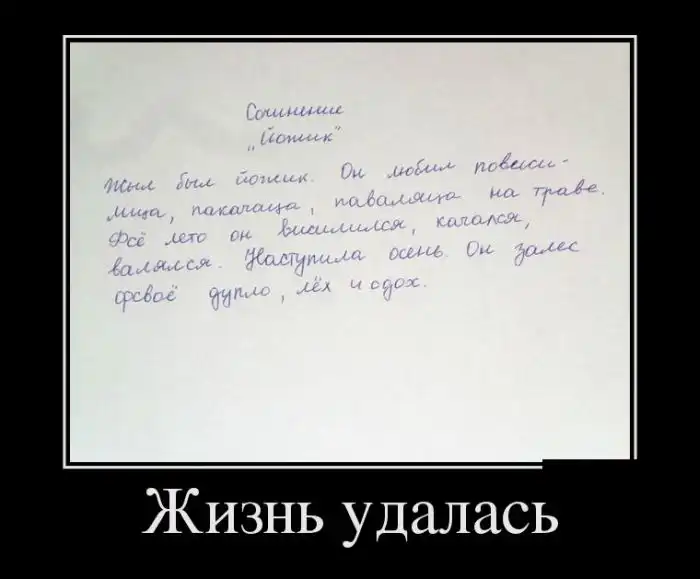 Сочинение
„Йожик"
Жыл был йожик. Он любил повесили-
лица, пакачаца, паваляца на траве.
Фсё лето он висилился, качался,
валялся. Наступила осень. Он залес
фсваё дупло, лёх и одох.
Жизнь удалась